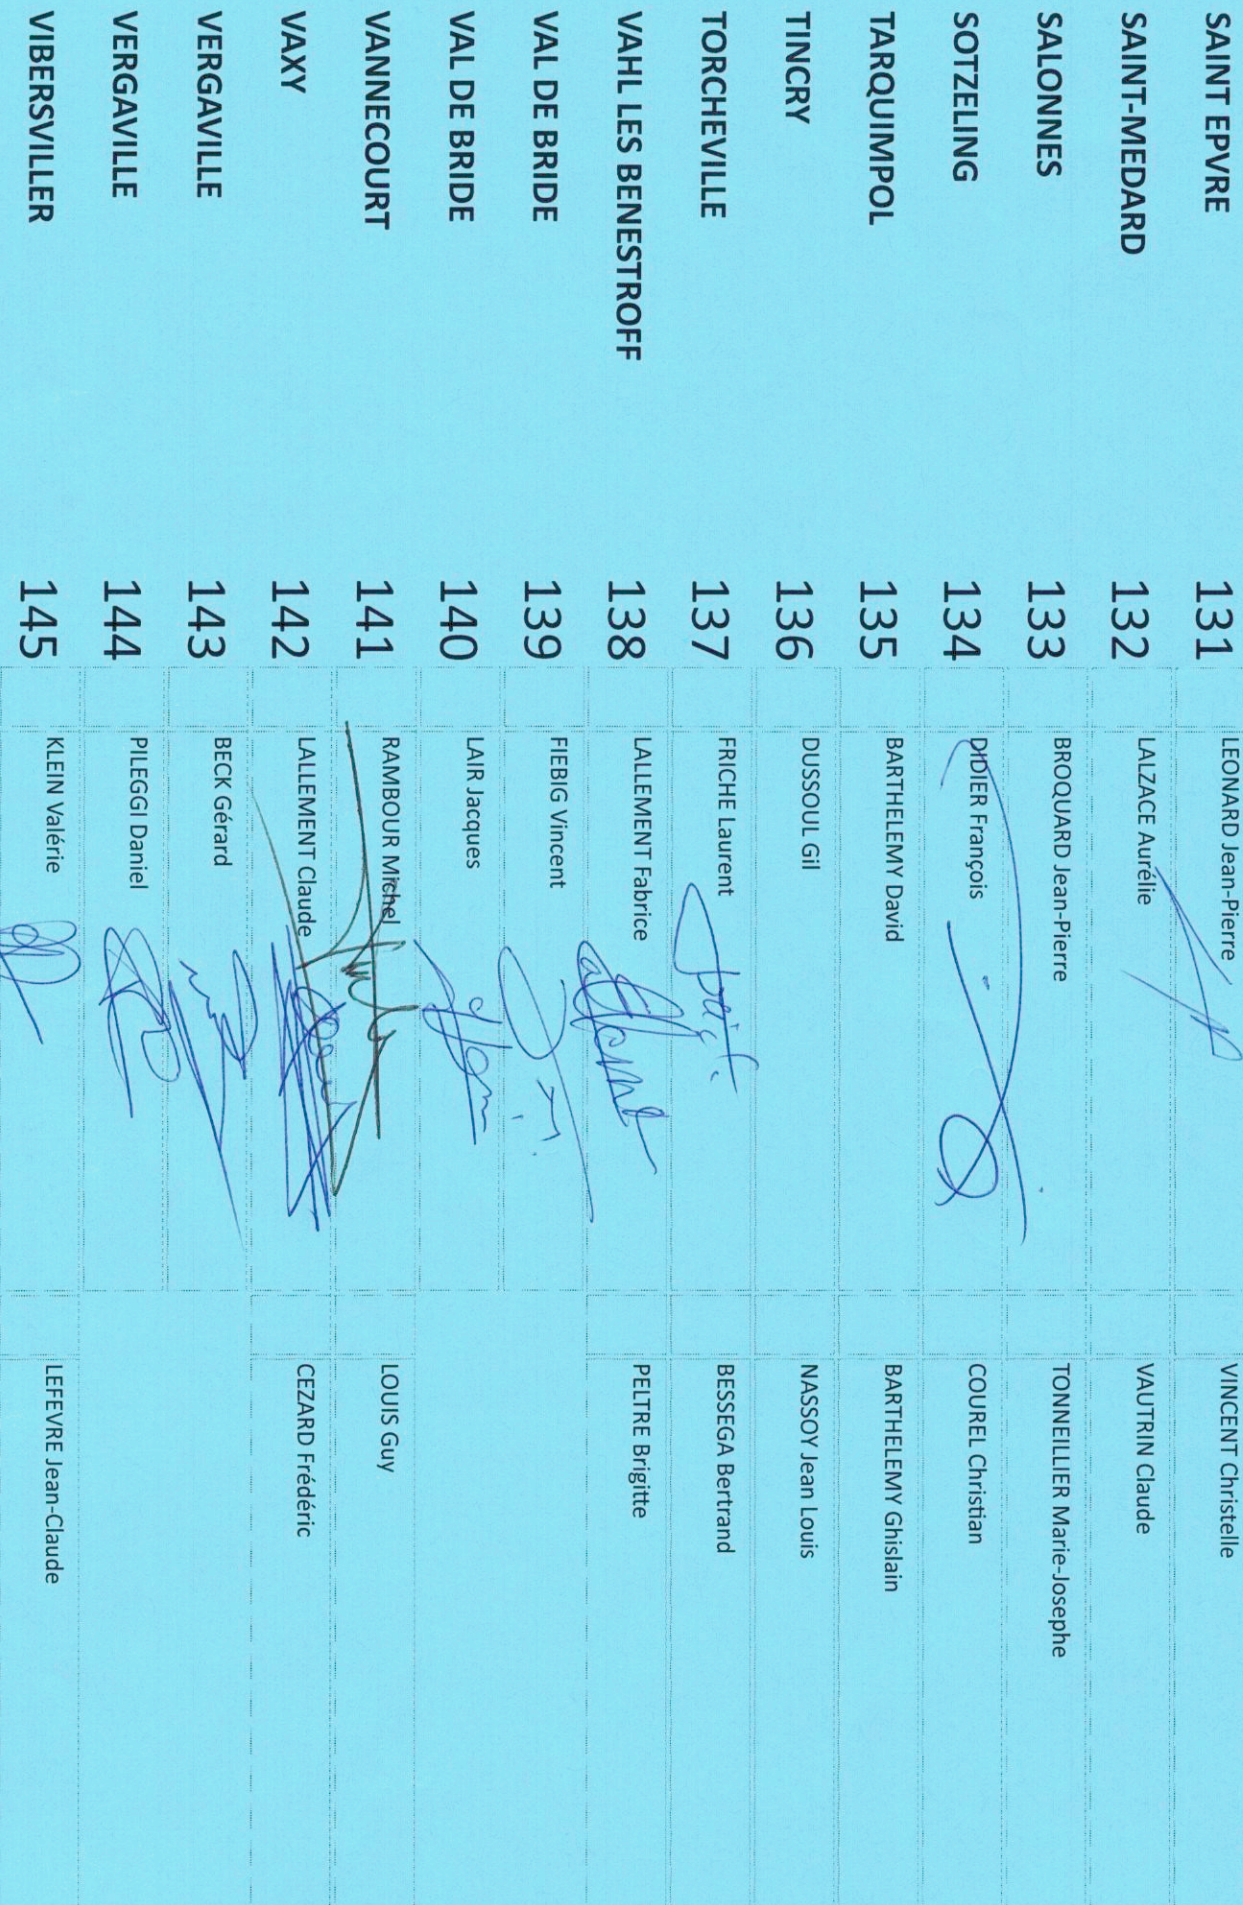 SAINT EPVRE 131 LEONARD Jean-Pierre VINCENT Christelle
SAINT-MEDARD 132 LALZACE Aurélie VAUTRIN Claude
SALONNES 133 BROQUARD Jean-Pierre TONNEILLIER Marie-Josephe
SOTZELING 134 DIDIER François COUREL Christian
TARQUIMPOL 135 BARTHELEMY David BARTHELEMY Ghislain
TINCRY 136 DUSSOUL Gil NASSOY Jean Louis
TORCHEVILLE 137 FRICHE Laurent BESSEGA Bertrand
VAHL LES BENESTROFF 138 LALLEMENT Fabrice PELTRE Brigitte
VAL DE BRIDE 139 FIEBIG Vincent
VAL DE BRIDE 140 LAIR Jacques
VANNECOURT 141 RAMBOUR Michel LOUIS Guy
VAXY 142 LALLEMENT Claude CEZARD Frédéric
VERGAVILLE 143 BECK Gérard
VERGAVILLE 144 PILEGGI Daniel
VIBERSVILLER 145 KLEIN Valérie LEFEVRE Jean-Claude